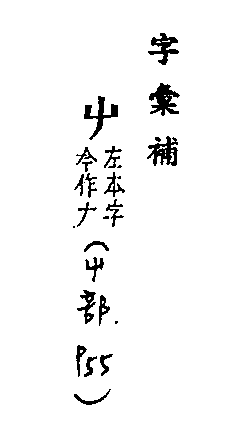 字彙補
屮
左本字
今作𠂇
(屮部.P55)